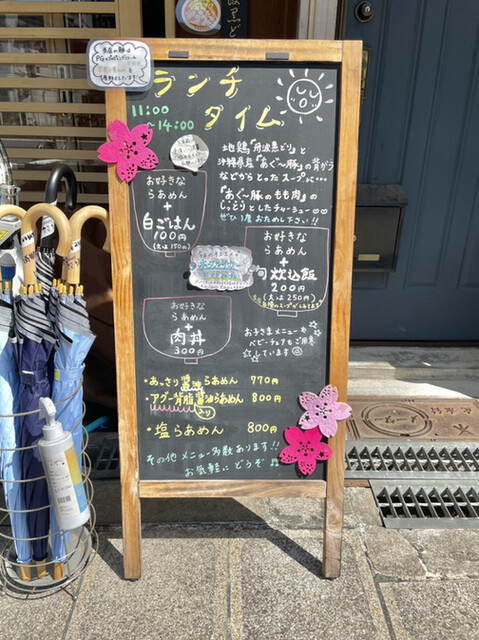 ランチ
タイム
11:00
~14:00
地鶏「丹波黒どり」と
沖縄県産「あぐー豚」の背がら
などからとったスープに…
「あぐ~豚のもも肉」の
しっとりとしたチャーシュー
ぜひ1度おためし下さい!!
お好きな
らあめん
+
白ごはん
100円
(大は150円)
お好きな
らあめん
+
旬炊込飯
200円
(大は250円)
お好きな
らあめん
+
肉丼
300円
お子さまメニューや
ベビーチェアもご用意
しています
・あっさり醤油らあめん 770円
・アグー背脂醤油らあめん 800円
入り
・塩らあめん 800円
その他メニュー多数あります!!
お気軽にどうぞ♫